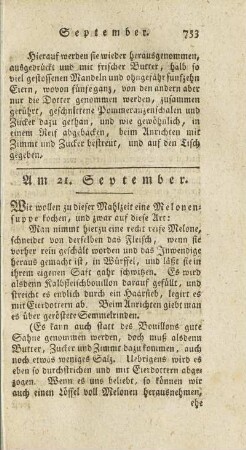 September. 753
Hierauf werden sie wieder herausgenommen,
ausgedrückt und mit frischer Butter, halb so
viel gestossenen Mandeln und ohngefähr funfzehn
Eiern, wovon fünfe ganz, von den andern aber
nur die Dotter genommen werden, zusammen
gerührt, geschnittene Pommeranzenschalen und
Zucker dazu gethan, und wie gewöhnlich, in
einem Reif abgebacken, beim Anrichten mit
Zimmt und Zucker bestreut, und auf den Tisch
gegeben.
Am 21. September.
Wir wollen zu dieser Mahlzeit eine Melonen-
suppe kochen, und zwar auf diese Art:
Man nimmt hierzu eine recht reife Melone,
schneidet von derselben das Fleisch, wenn sie
vorher rein geschält worden und das Inwendige
heraus gemacht ist, in Würfel, und läßt sie in
ihrem eigenen Saft gahr schwitzen. Es wird
alsdenn Kalbsfleischbouillon darauf gefüllt, und
streicht es endlich durch ein Haarsieb, legirt es
mit Eierdottern ab. Beim Anrichten giebt man es
über gerösteter Semmelrinden.
(Es kann auch statt des Bouillons gute
Sahne genommen werden, doch muß alsdenn
Butter, Zucker und Zimmt dazu kommen, auch
noch etwas weniges Salz. Uebrigens wird es
eben so durchstrichen und mit Eierdottern abge-
zogen. Wenn es uns beliebt, so können wir
auch einen Löffel voll Melonen herausnehmen,
ehe